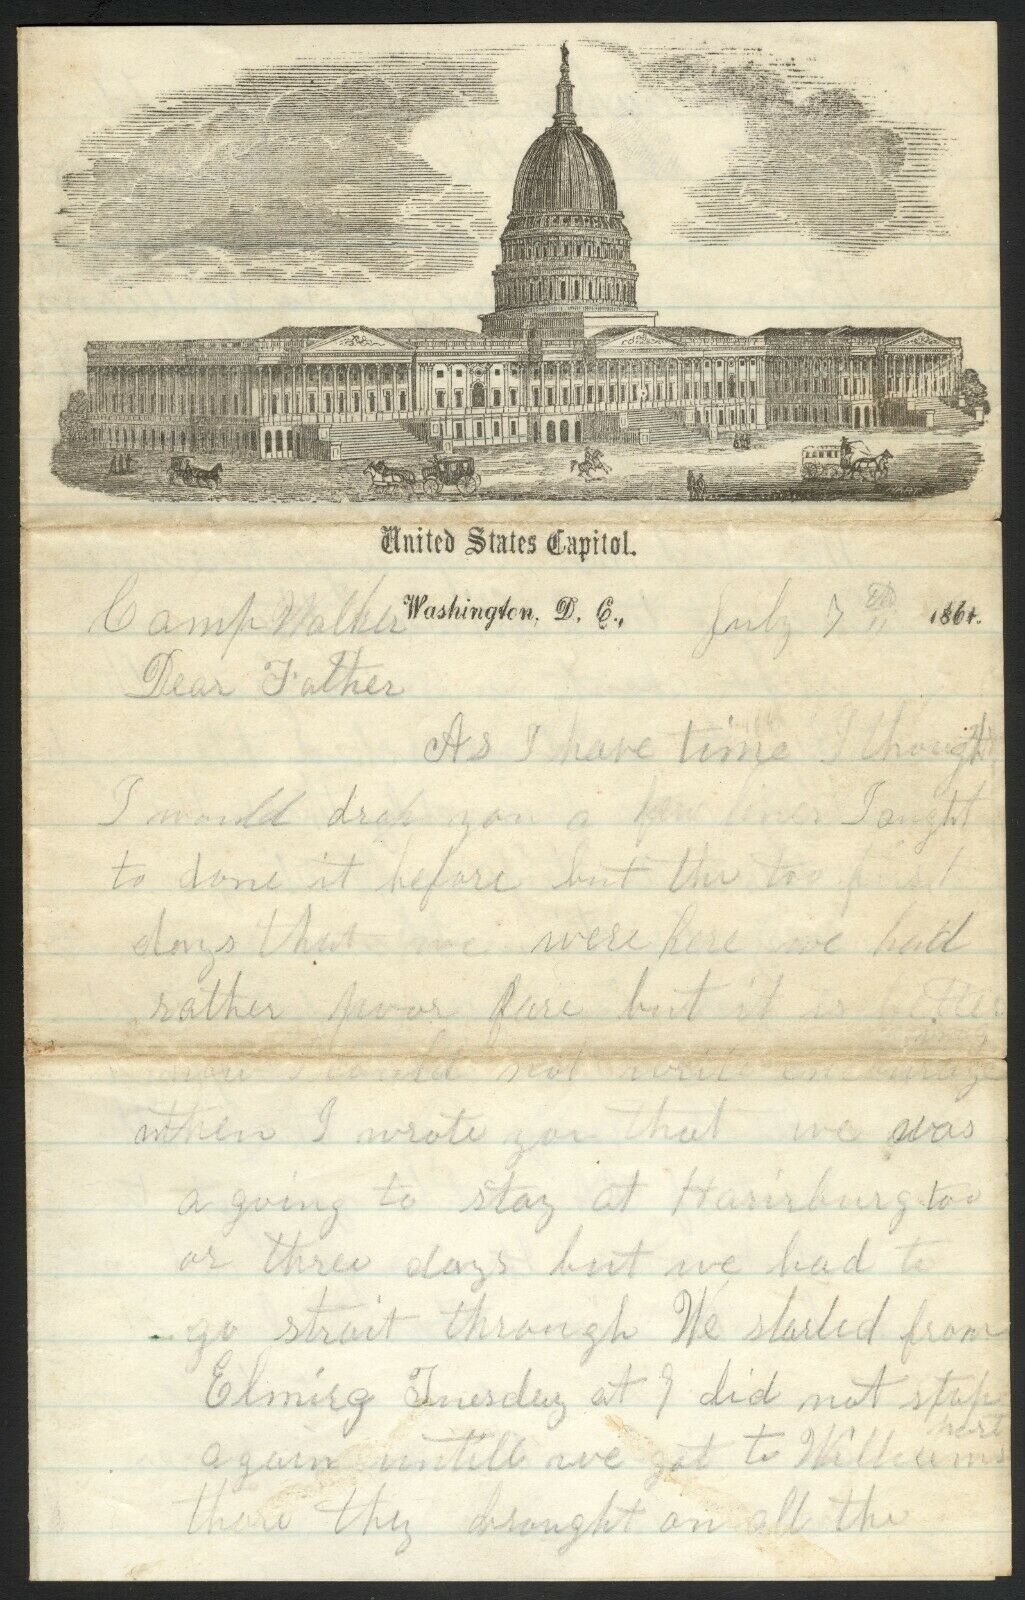 United States Capitol.
Camp Walker Washington, D. C., July 7th 1861.
Dear Father
As I have time I thought
I would drop you a few lines I ought
to done it before but the too first
days that we were here we had
rather poor fare but it is better
now I could not write
when I wrote you that we was
a going to stay at Harirburg too
or three days but we had to
go strait through We started from
Elmira Tuesday at 9 did not stop
again untill we got to Williamsport
thare they brought on all the